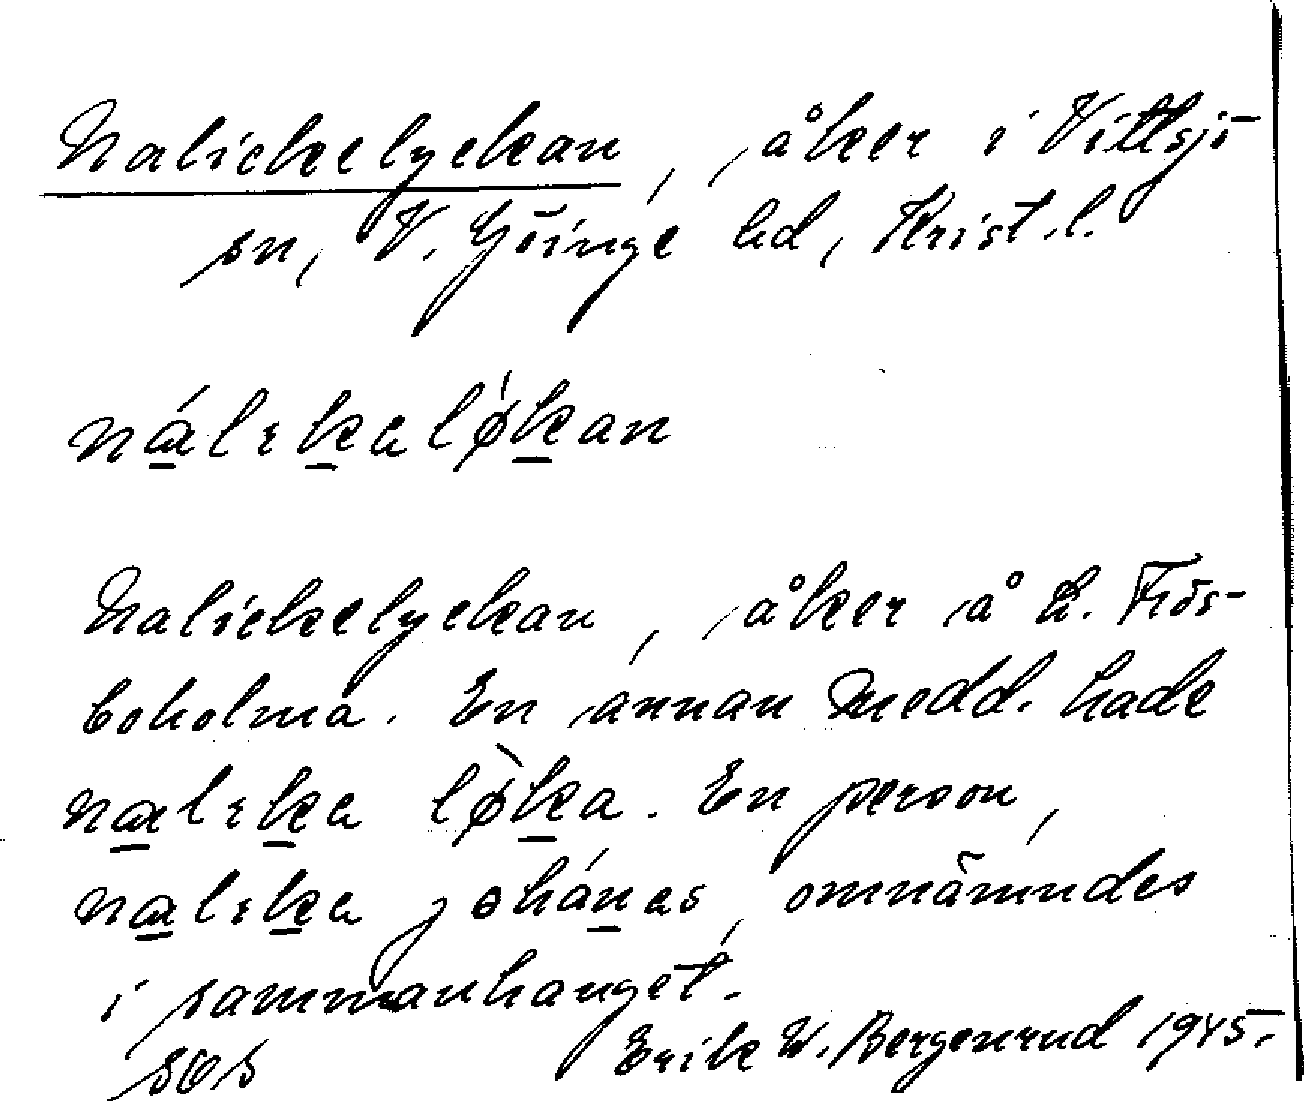 Nalickelyckan, åker i Vittsjö
sn, V. Göinge hd, Krist. l.
nálıkalǿkan
Nalickelyckan, åker å L. Frös-
boholma. En annan medd. hade
nalıka lø̀ka. En person,
nalıka johánas, omnämndes
i sammanhanget.
Erik W. Bergenrud 1945.